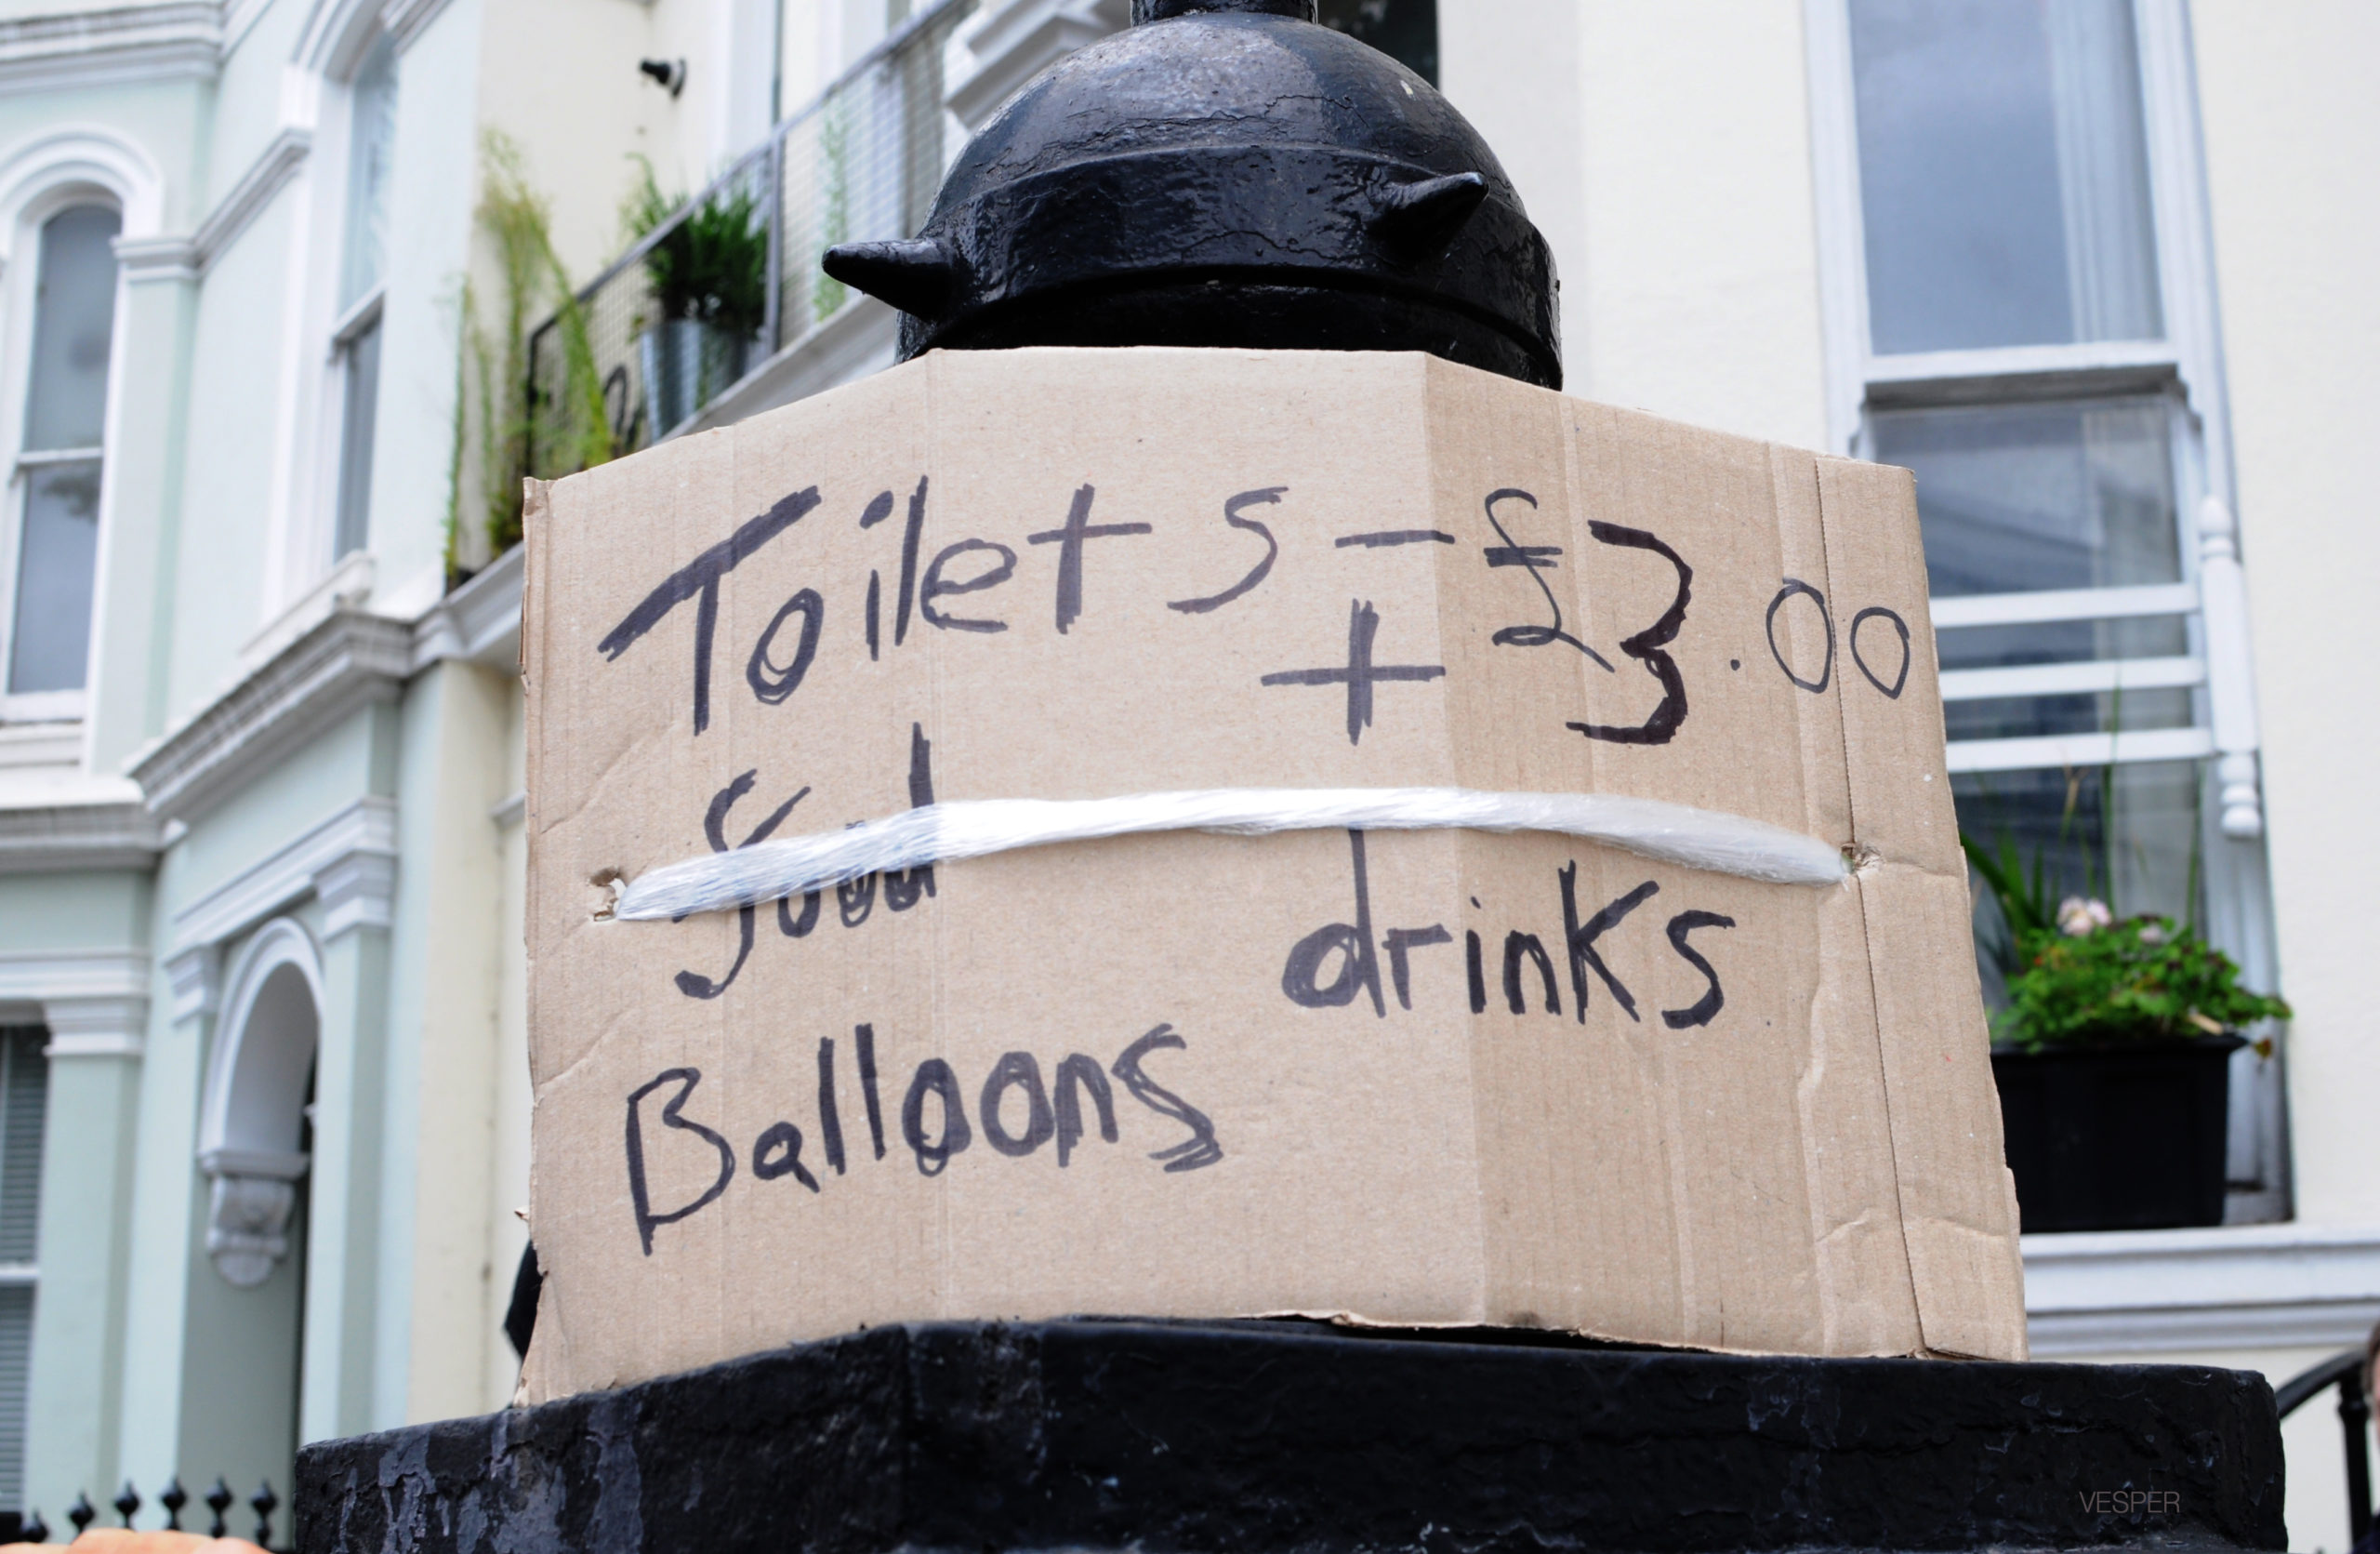 Toilets - £3.00
+
food
drinks
Balloons
VESPER